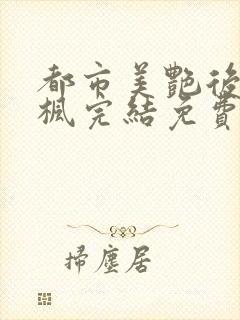 都市美艷後
楓完結免費
掃塵居